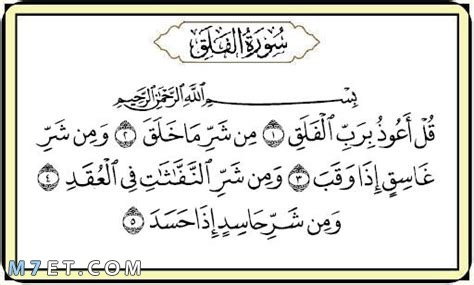 سُورَةُ الْفَلَقِ
بِسْمِ اللَّهِ الرَّحْمَٰنِ الرَّحِيمِ
قُلْ أَعُوذُ بِرَبِّ الْفَلَقِ ١ مِن شَرِّ مَا خَلَقَ ٢ وَمِن شَرِّ
غَاسِقٍ إِذَا وَقَبَ ٣ وَمِن شَرِّ النَّفَّاثَاتِ فِي الْعُقَدِ ٤
وَمِن شَرِّ حَاسِدٍ إِذَا حَسَدَ ٥
M7ET.COM